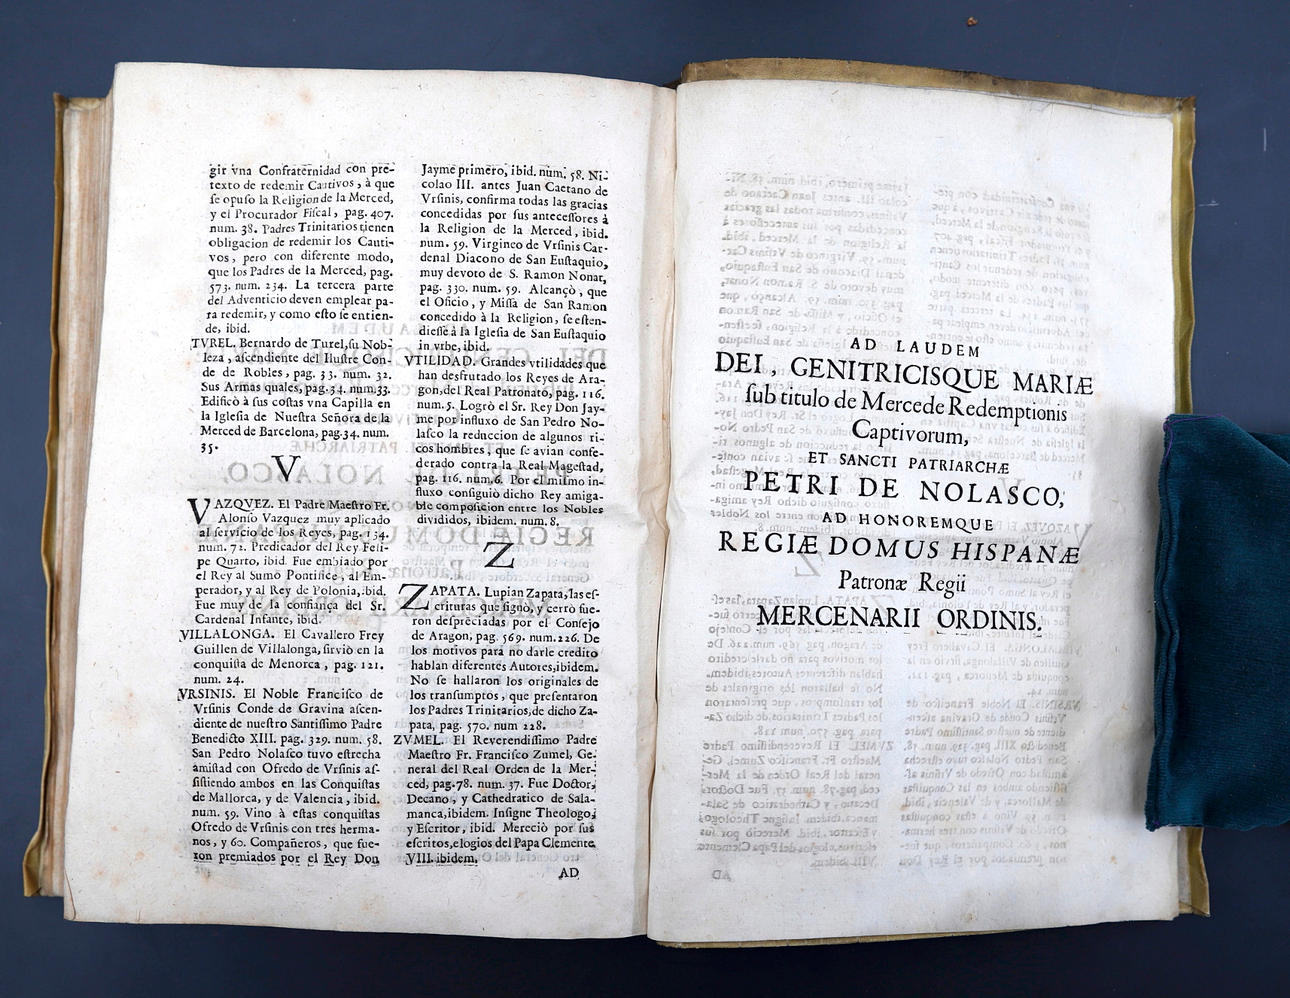 gir vna Confraternidad con pre-
texto de redemir Cautivos, à que
se opuso la Religion de la Merced,
y el Procurador Fiscal, pag. 407.
num. 38. Padres Trinitarios tienen
obligacion de redemir los Cauti-
vos, pero con diferente modo,
que los Padres de la Merced, pag.
573. num. 234. La tercera parte
del Adventicio deven emplear pa-
ra redemir, y como esto se entien-
de, ibid.
TVREL. Bernardo de Turel, su Nob-
leza, ascendiente del Ilustre Con-
de de Robles, pag. 33. num. 32.
Sus Armas quales, pag. 34. num. 33.
Edificò à sus costas vna Capilla en
la Iglesia de Nuestra Señora de la
Merced de Barcelona, pag. 34. num.
35.
V
VAZQVEZ. El Padre Maestro Fr.
Alonso Vazquez muy aplicado
al servicio de los Reyes, pag. 134.
num. 72. Predicador del Rey Feli-
pe Quarto, ibid. Fue embiado por
el Rey al Sumo Pontifice, al Em-
perador, y al Rey de Polonia, ibid.
Fue muy de la confiança del Sr.
Cardenal Infante, ibid.
VILLALONGA. El Cavallero Frey
Guillen de Villalonga, sirviò en la
conquista de Menorca, pag. 121.
num. 24.
VRSINIS. El Noble Francisco de
Vrsinis Conde de Gravina ascen-
diente de nuestro Santissimo Padre
Benedicto XIII. pag. 329. num. 58.
San Pedro Nolasco tuvo estrecha
amistad con Ofredo de Vrsinis as-
sistiendo ambos en las Conquistas
de Mallorca, y de Valencia, ibid.
num. 59. Vino à estas conquistas
Ofredo de Vrsinis con tres herma-
nos, y 60. Compañeros, que fue-
ron premiados por el Rey Don
Jayme primero, ibid. num. 58. Ni-
colao III. antes Juan Caetano de
Vrsinis, confirma todas las gracias
concedidas por sus antecessores à
la Religion de la Merced, ibid.
num. 59. Virgineo de Vrsinis Car-
denal Diacono de San Eustaquio,
muy devoto de S. Ramon Nonat,
pag. 330. num. 59. Alcançò, que
el Oficio, y Missa de San Ramon
concedido à la Religion, se esten-
diesse à la Iglesia de San Eustaquio
in vrbe, ibid.
VTILIDAD. Grandes vtilidades que
han desfrutado los Reyes de Ara-
gon, del Real Patronato, pag. 116.
num. 5. Logrò el Sr. Rey Don Jay-
me por influxo de San Pedro No-
lasco la reduccion de algunos ri-
cos hombres, que se avian confe-
derado contra la Real Magestad,
pag. 116. num. 6. Por el mismo in-
fluxo consiguiò dicho Rey amiga-
ble composicion entre los Nobles
divididos, ibidem. num. 8.
Z
ZAPATA. Lupian Zapata, las es-
crituras que signò, y cerrò fue-
ron despreciadas por el Consejo
de Aragon, pag. 569. num. 226. De
los motivos para no darle credito
hablan diferentes Autores, ibidem.
No se hallaron los originales de
los transumptos, que presentaron
los Padres Trinitarios, de dicho Za-
pata, pag. 570. num 228.
ZVMEL. El Reverendissimo Padre
Maestro Fr. Francisco Zumel, Ge-
neral del Real Orden de la Mer-
ced, pag. 78. num. 37. Fue Doctor,
Decano, y Cathedratico de Sala-
manca, ibidem. Insigne Theologo,
y Escritor, ibid. Mereciò por sus
escritos, elogios del Papa Clemente
VIII. ibidem.
AD
AD LAUDEM
DEI, GENITRICISQUE MARIÆ
sub titulo de Mercede Redemptionis
Captivorum,
ET SANCTI PATRIARCHÆ
PETRI DE NOLASCO,
AD HONOREMQUE
REGIÆ DOMUS HISPANÆ
Patronæ Regii
MERCENARII ORDINIS.